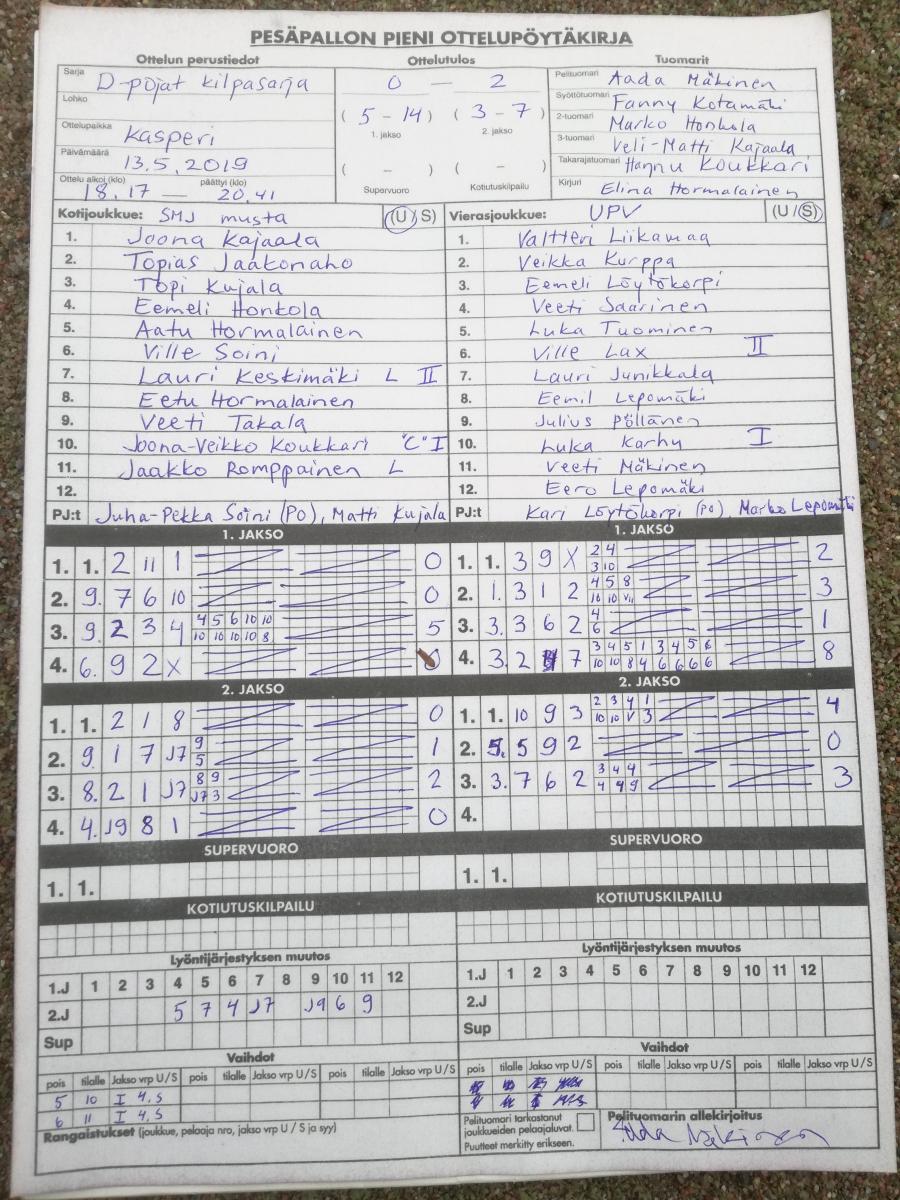 PESÄPALLON PIENI OTTELUPÖYTÄKIRJA
Ottelun perustiedot
Sarja D-pojat kilpasarja
Lohko
Ottelupaikka Kasperi
Päivämäärä 13.5.2019
Ottelu alkoi (klo) päättyi (klo)
18.17 — 20.41
Ottelutulos
0 — 2
( 5 - 14 ) ( 3 - 7 )
1. jakso 2. jakso
( - ) ( - )
Supervuoro Kotiutuskilpailu
Tuomarit
Pelituomari Aada Mäkinen
Syöttötuomari Fanny Kotamäki
2-tuomari Marko Honkola
3-tuomari Veli-Matti Kajaala
Takarajatuomari Hannu Koukkari
Kirjuri Elina Hormalainen
Kotijoukkue: SMJ musta (U/S)
1. Joona Kajaala
2. Topias Jaakonaho
3. Topi Kujala
4. Eemeli Honkola
5. Aatu Hormalainen
6. Ville Soini
7. Lauri Keskimäki L II
8. Eetu Hormalainen
9. Veeti Takala
10. Joona-Veikko Koukkari "C" I
11. Jaakko Romppainen L
12.
PJ:t Juha-Pekka Soini (PO), Matti Kujala
Vierasjoukkue: UPV (U/S)
1. Valtteri Liikamaa
2. Veikka Kurppa
3. Eemeli Löytökorpi
4. Veeti Saarinen
5. Luka Tuominen
6. Ville Lax II
7. Lauri Junikkala
8. Eemil Lepomäki
9. Julius Pöllänen
10. Luka Karhu I
11. Veeti Mäkinen
12. Eero Lepomäki
PJ:t Kari Löytökorpi (PO), Marko Lepomäki
1. JAKSO
1. 1. 2 11 1 0
2. 9. 7 6 10 0
3. 9. 2 3 4 4 5 6 10 10 5
10 10 10 10 8
4. 6. 9 2 X
2. JAKSO
1. 1. 2 1 8 0
2. 9. 1 7 J7 9 1
5
3. 8. 2 1 J7 8 9 2
J7 3
4. 4. J9 8 1 0
SUPERVUORO
1. 1.
KOTIUTUSKILPAILU
Lyöntijärjestyksen muutos
1.J 1 2 3 4 5 6 7 8 9 10 11 12
2.J 5 7 4 J7 J9 6 9
Sup
Vaihdot
pois tilalle Jakso vrp U/S pois tilalle Jakso vrp U/S pois tilalle Jakso vrp U/S
5 10 I 4.S
6 11 I 4.S
Rangaistukset (joukkue, pelaaja nro, jakso vrp U / S ja syy)
1. JAKSO
1. 1. 3 9 X 2 4 2
3 10
2. 1. 3 1 2 4 5 8 3
10 10 VII
3. 3. 3 6 2 4 1
6
4. 3. 2 7 3 4 5 1 3 4 5 6 8
10 10 8 4 6 6 6 6
2. JAKSO
1. 1. 10 9 3 2 3 4 1 4
10 10 V 3
2. 5. 5 9 2 0
3. 3. 7 6 2 3 4 4 3
4 4 9
4.
SUPERVUORO
1. 1.
KOTIUTUSKILPAILU
Lyöntijärjestyksen muutos
1.J 1 2 3 4 5 6 7 8 9 10 11 12
2.J
Sup
Vaihdot
pois tilalle Jakso vrp U/S pois tilalle Jakso vrp U/S pois tilalle Jakso vrp U/S
Pelituomari tarkastanut
joukkueiden pelaajaluvat.
Puutteet merkitty erikseen.
Pelituomarin allekirjoitus
Aada Mäkinen